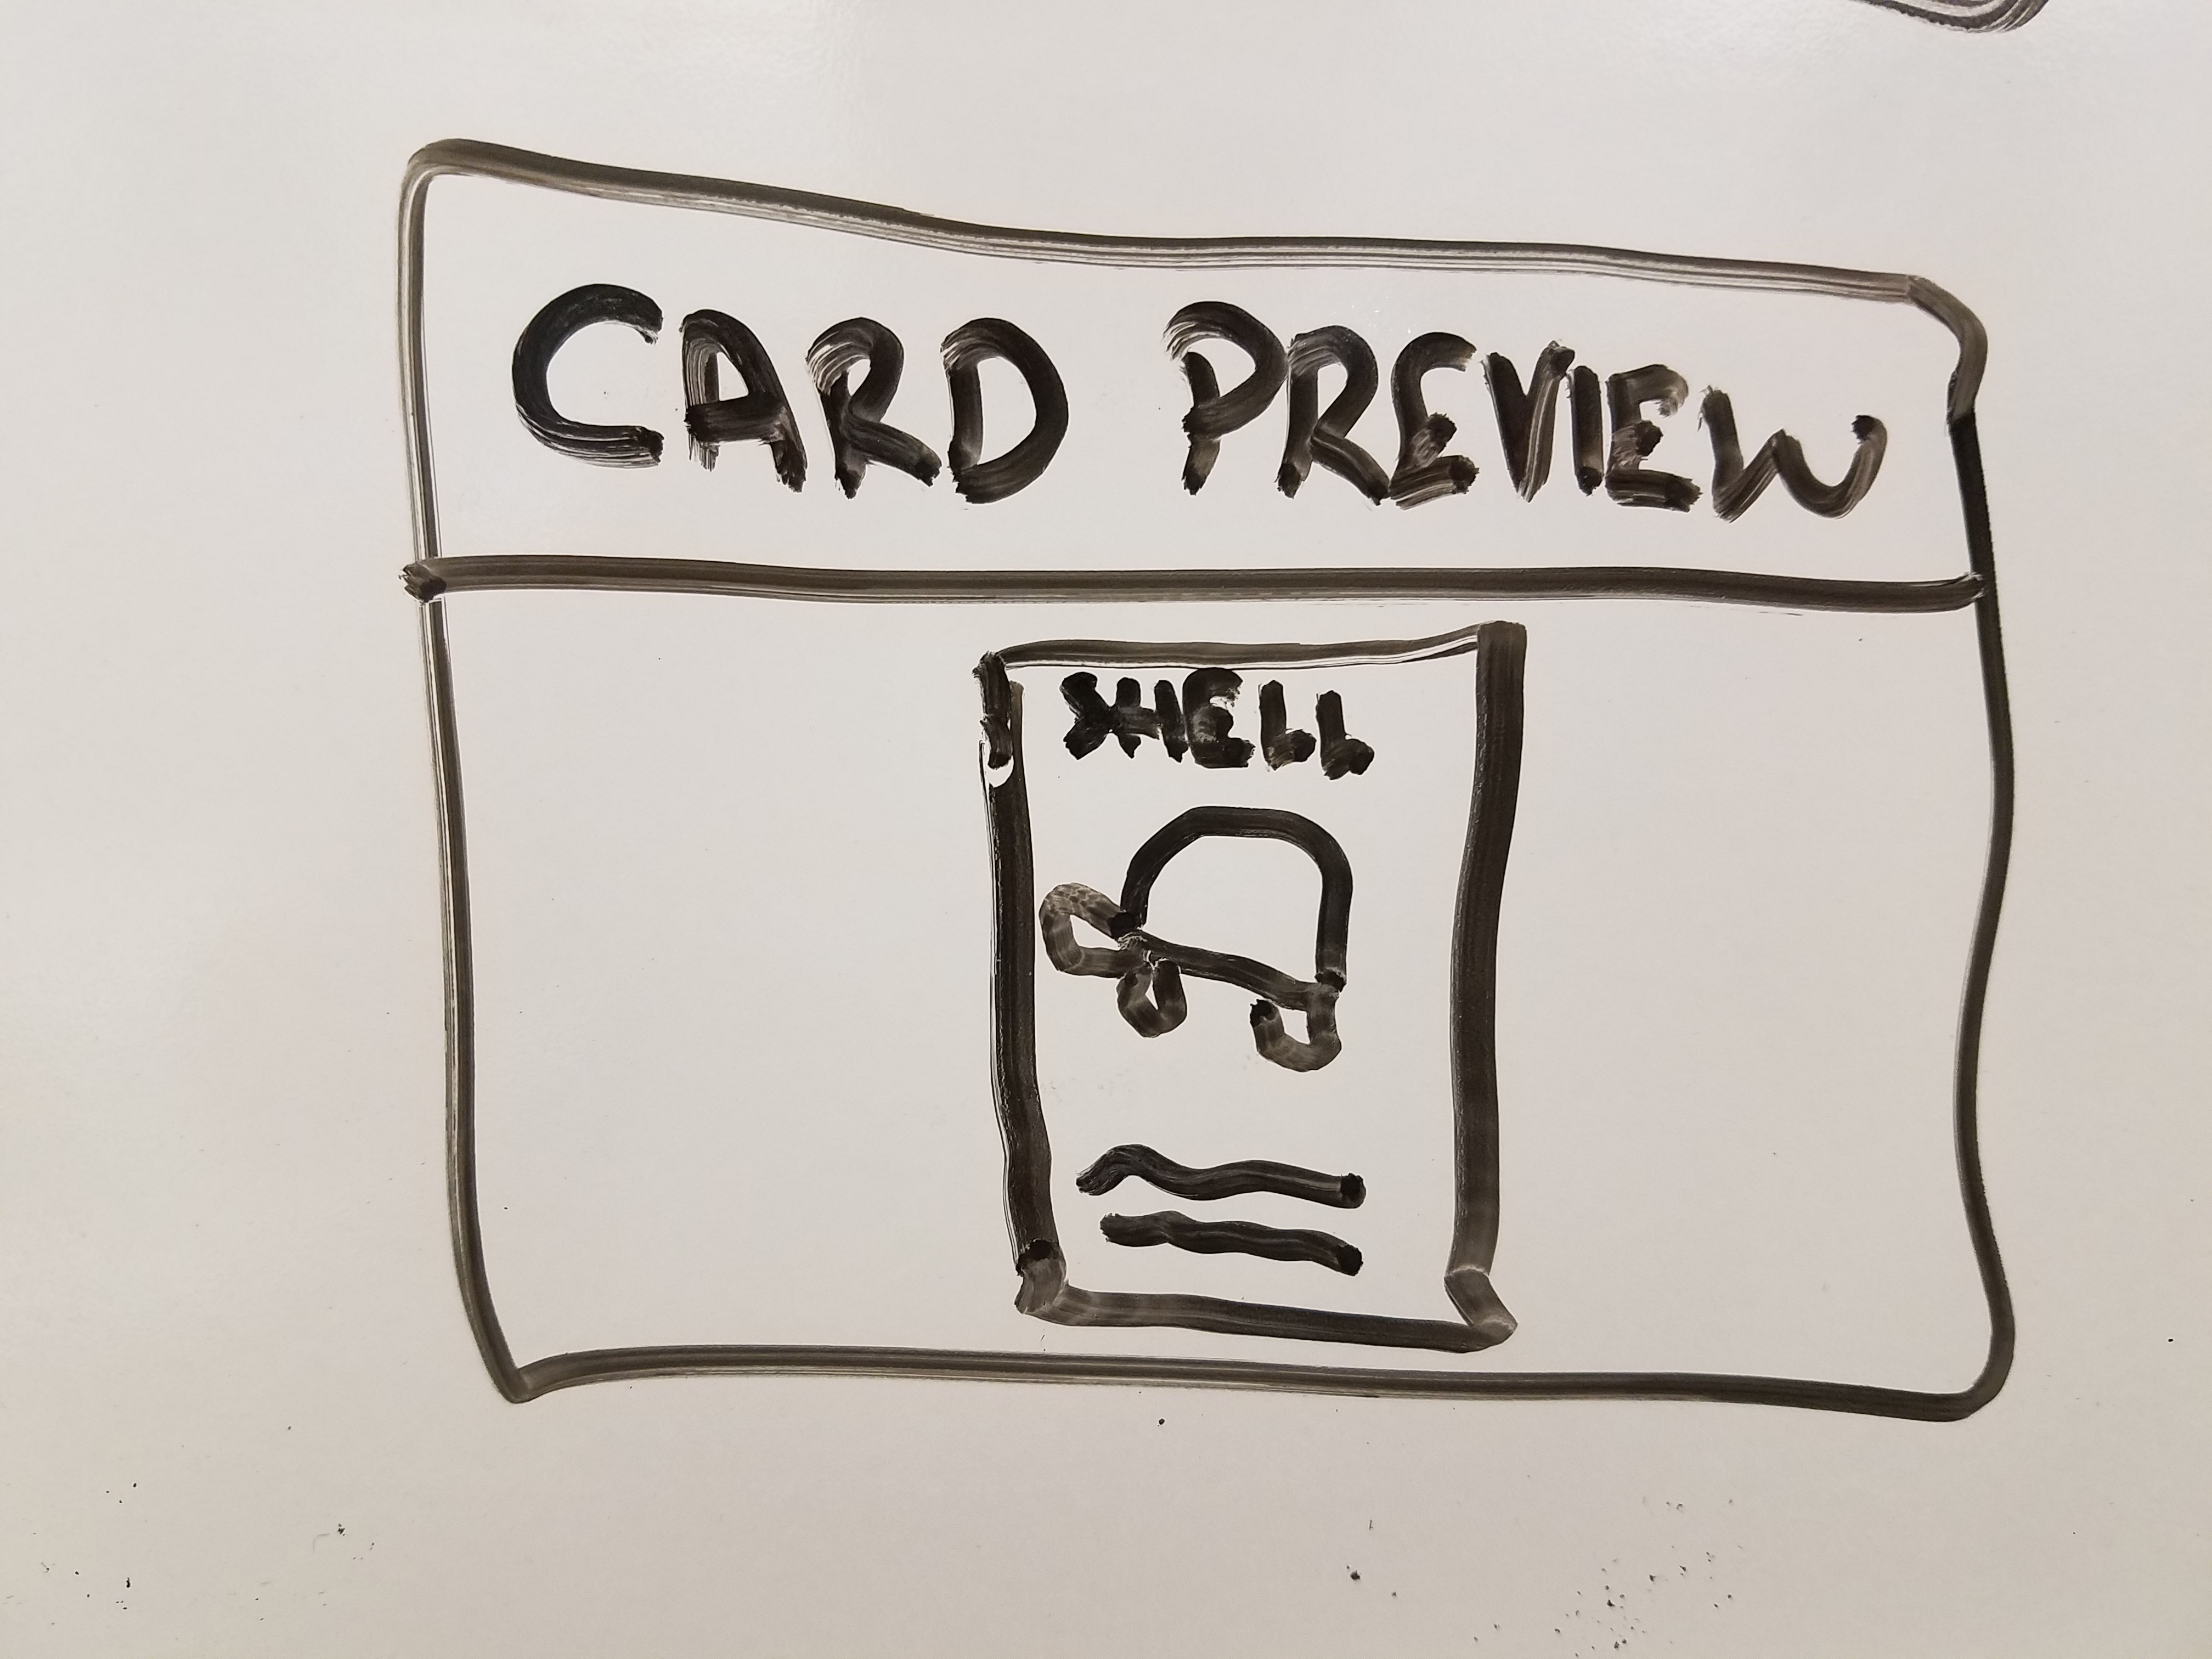 CARD PREVIEW
SHELL